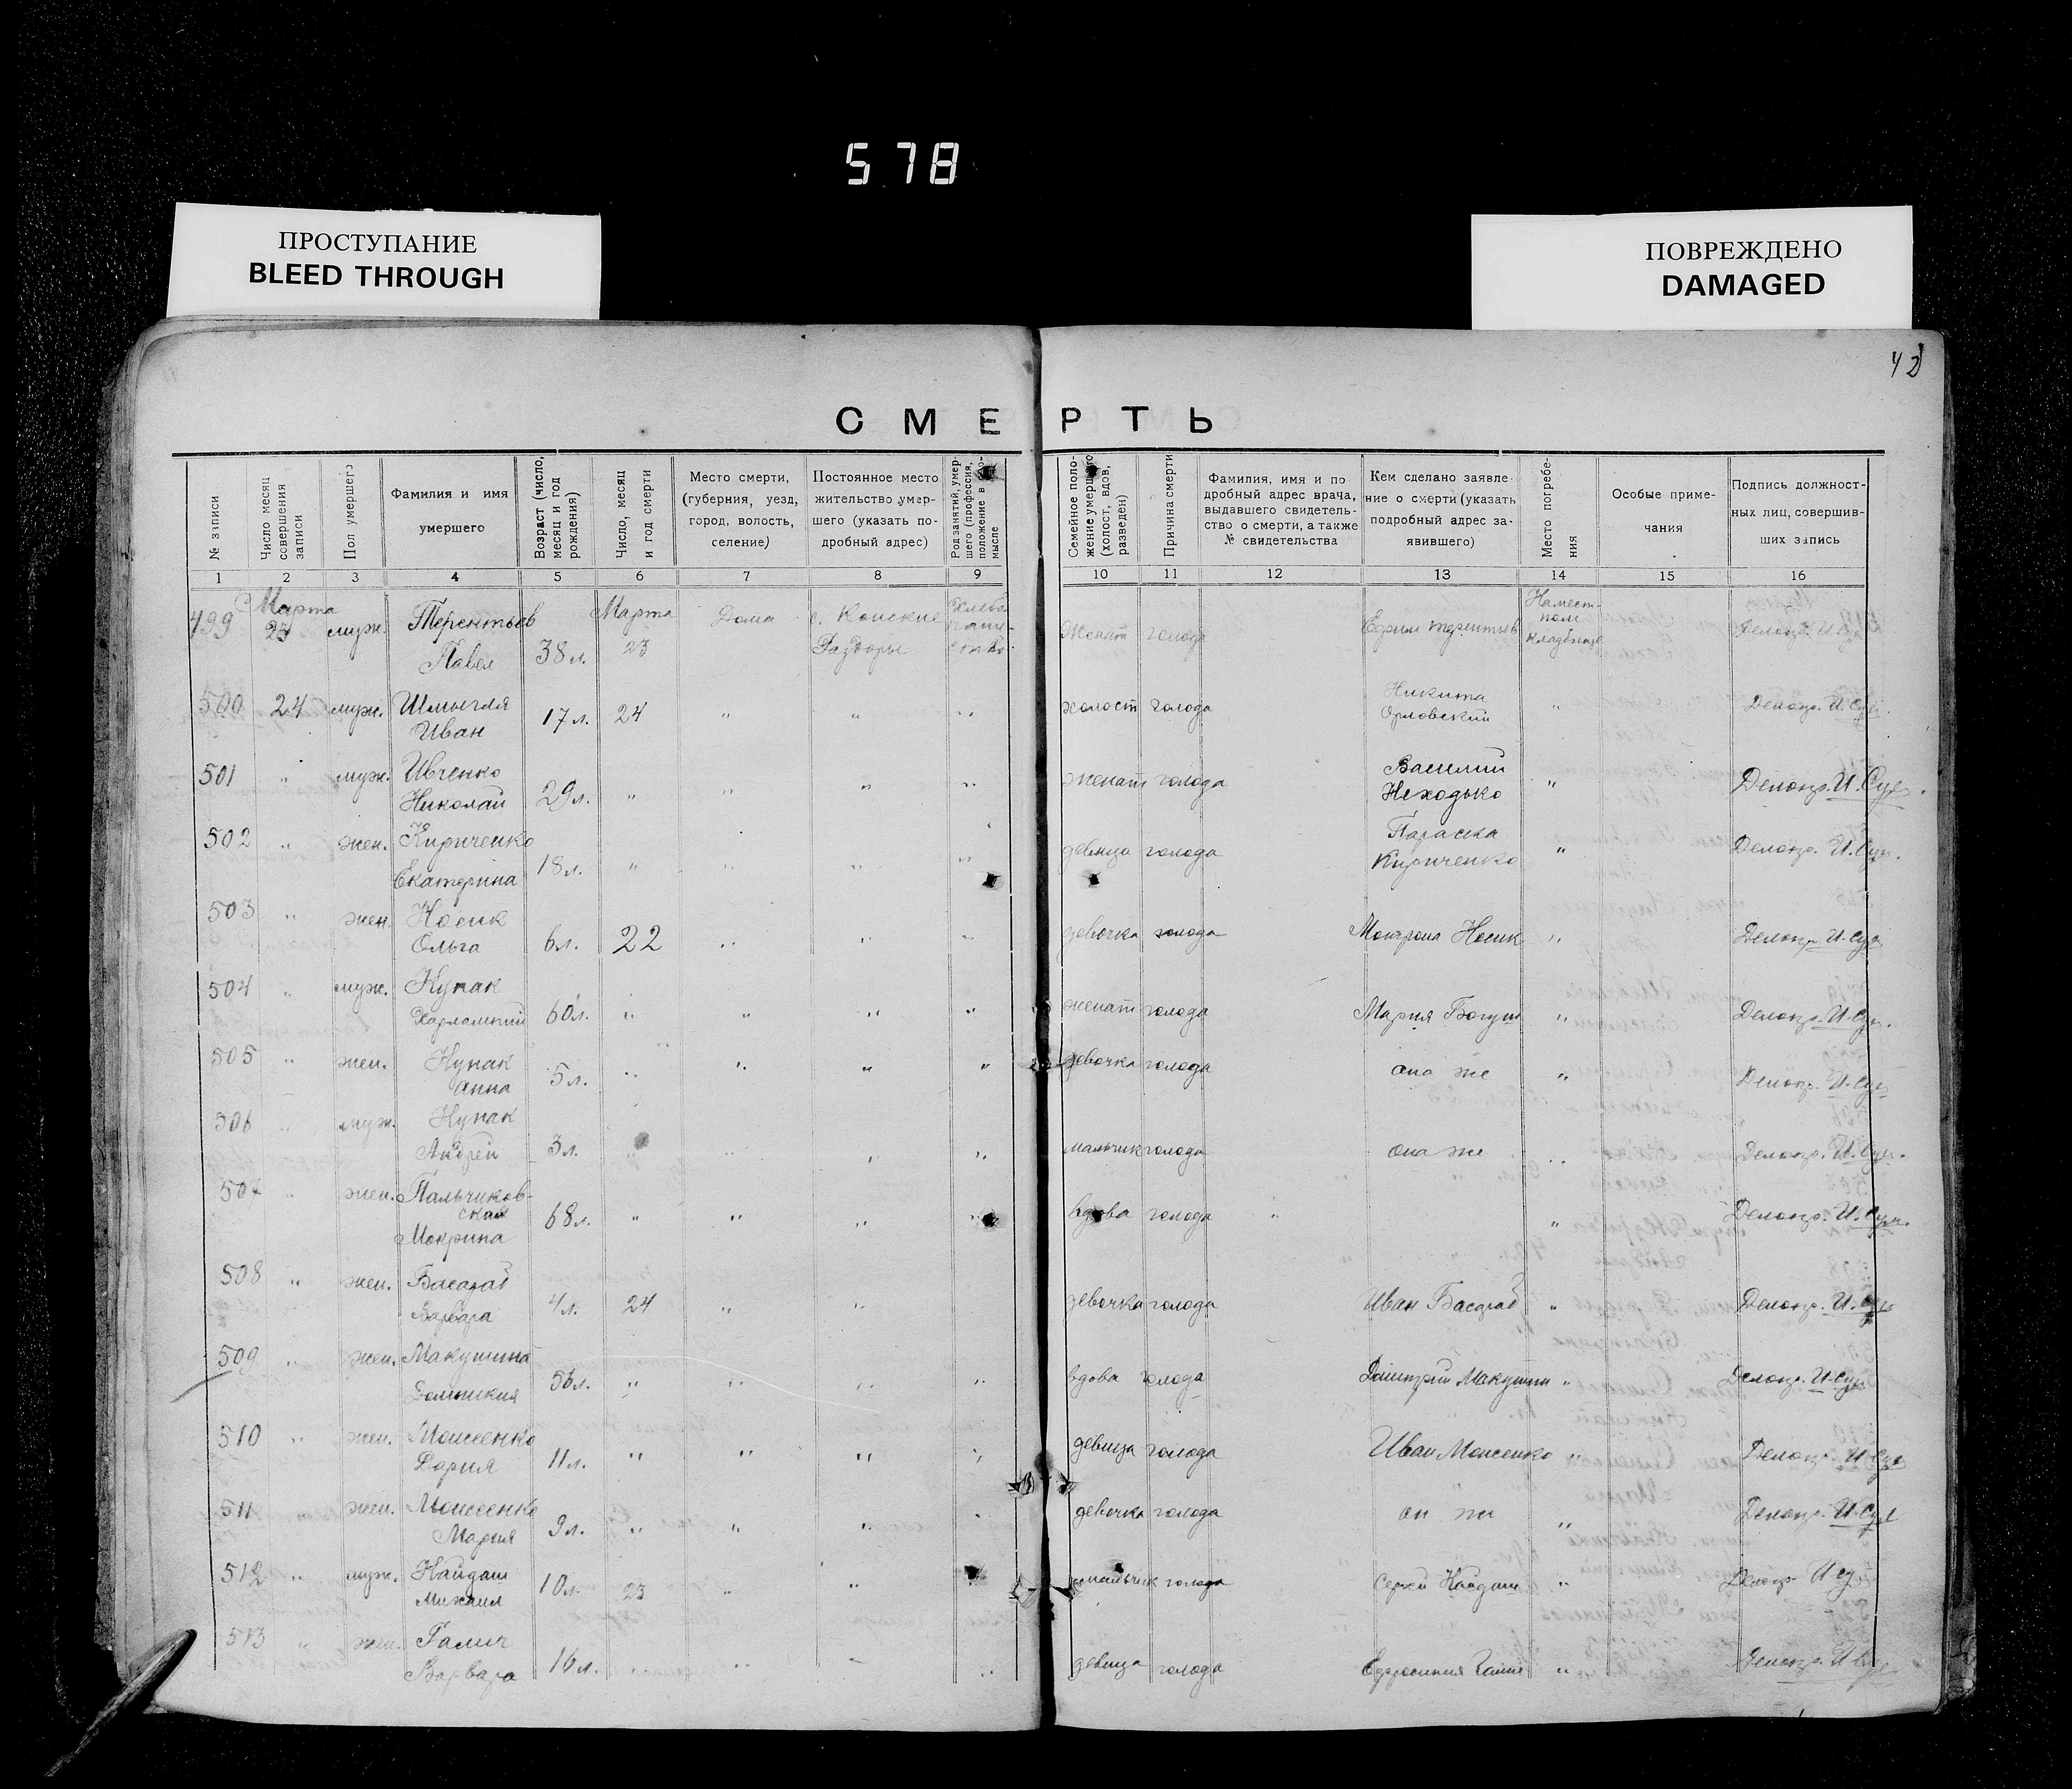 578
ПРОСТУПАНИЕ
BLEED THROUGH
ПОВРЕЖДЕНО
DAMAGED
42
СМЕРТЬ
№ записи
Число месяц совершения записи
Пол умершего
Фамилия и имя умершего
Возраст (число, месяц и год рождения)
Число, месяц и год смерти
Место смерти, (губерния, уезд, город, волость, селение)
Постоянное место жительство умершего (указать подробный адрес)
Род занятий, умершего (профессия, положение в промысле
Семейное положение умершего (холост, вдов, разведен)
Причина смерти
Фамилия, имя и подробный адрес врача, выдавшего свидетельство о смерти, а также № свидетельства
Кем сделано заявление о смерти (указать подробный адрес заявившего)
Место погребения
Особые примечания
Подпись должностных лиц, совершивших запись
1 2 3 4 5 6 7 8 9 10 11 12 13 14 15 16
499 Марта 23 муж. Терентьев Павел 38 л. Марта 23 Дома с. Конские Раздоры женат голода Ефрем Терентьев кладбище Делопр. И.
500 24 муж. Шмыгля Иван 17 л. 24 " " " холост голода Никита Орловский " Делопр. И.
501 " муж. Ивченко Николай 29 л. " " " " женат голода Василий Неходько " Делопр. И.
502 " жен. Кириченко Екатерина 18 л. " " " " девица голода Параска Кириченко " Делопр. И.
503 " жен. Носик Ольга 6 л. 22 " " " девочка голода Носик " Делопр. И.
504 " муж. Харлампий 60 л. " " " " женат голода Мария Богуш " Делопр. И.
505 " жен. Анна 5 л. " " " " девочка голода она же " Делопр. И.
506 " муж. Андрей 3 л. " " " " мальчик голода она же " Делопр. И.
507 " жен. Пальчиковская Мокрина 68 л. " " " " вдова голода " " Делопр. И.
508 " жен. Варвара 4 л. 24 " " девочка голода Иван " Делопр. И.
509 " жен. Макушина 56 л. " " " " вдова голода Дмитрий Макушин " Делопр. И.
510 " жен. Моисеенко Дария 11 л. " " " " девица голода Иван Моисеенко " Делопр. И.
511 жен. Моисеенко Мария 9 л. " " " " девочка голода он же " Делопр. И.
512 " муж. Кайдаш Михаил 10 л. 23 " " мальчик голода Сергей Кайдаш " Делопр. И.
513 " жен. Галич Варвара 16 л. " " " " девица голода Ефросиния Галич " Делопр. И.